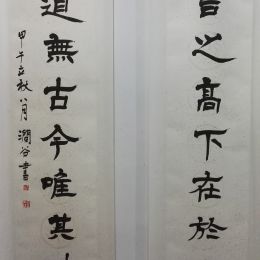 言之高下在於
道無古今唯其
甲午立秋八月澗谷書